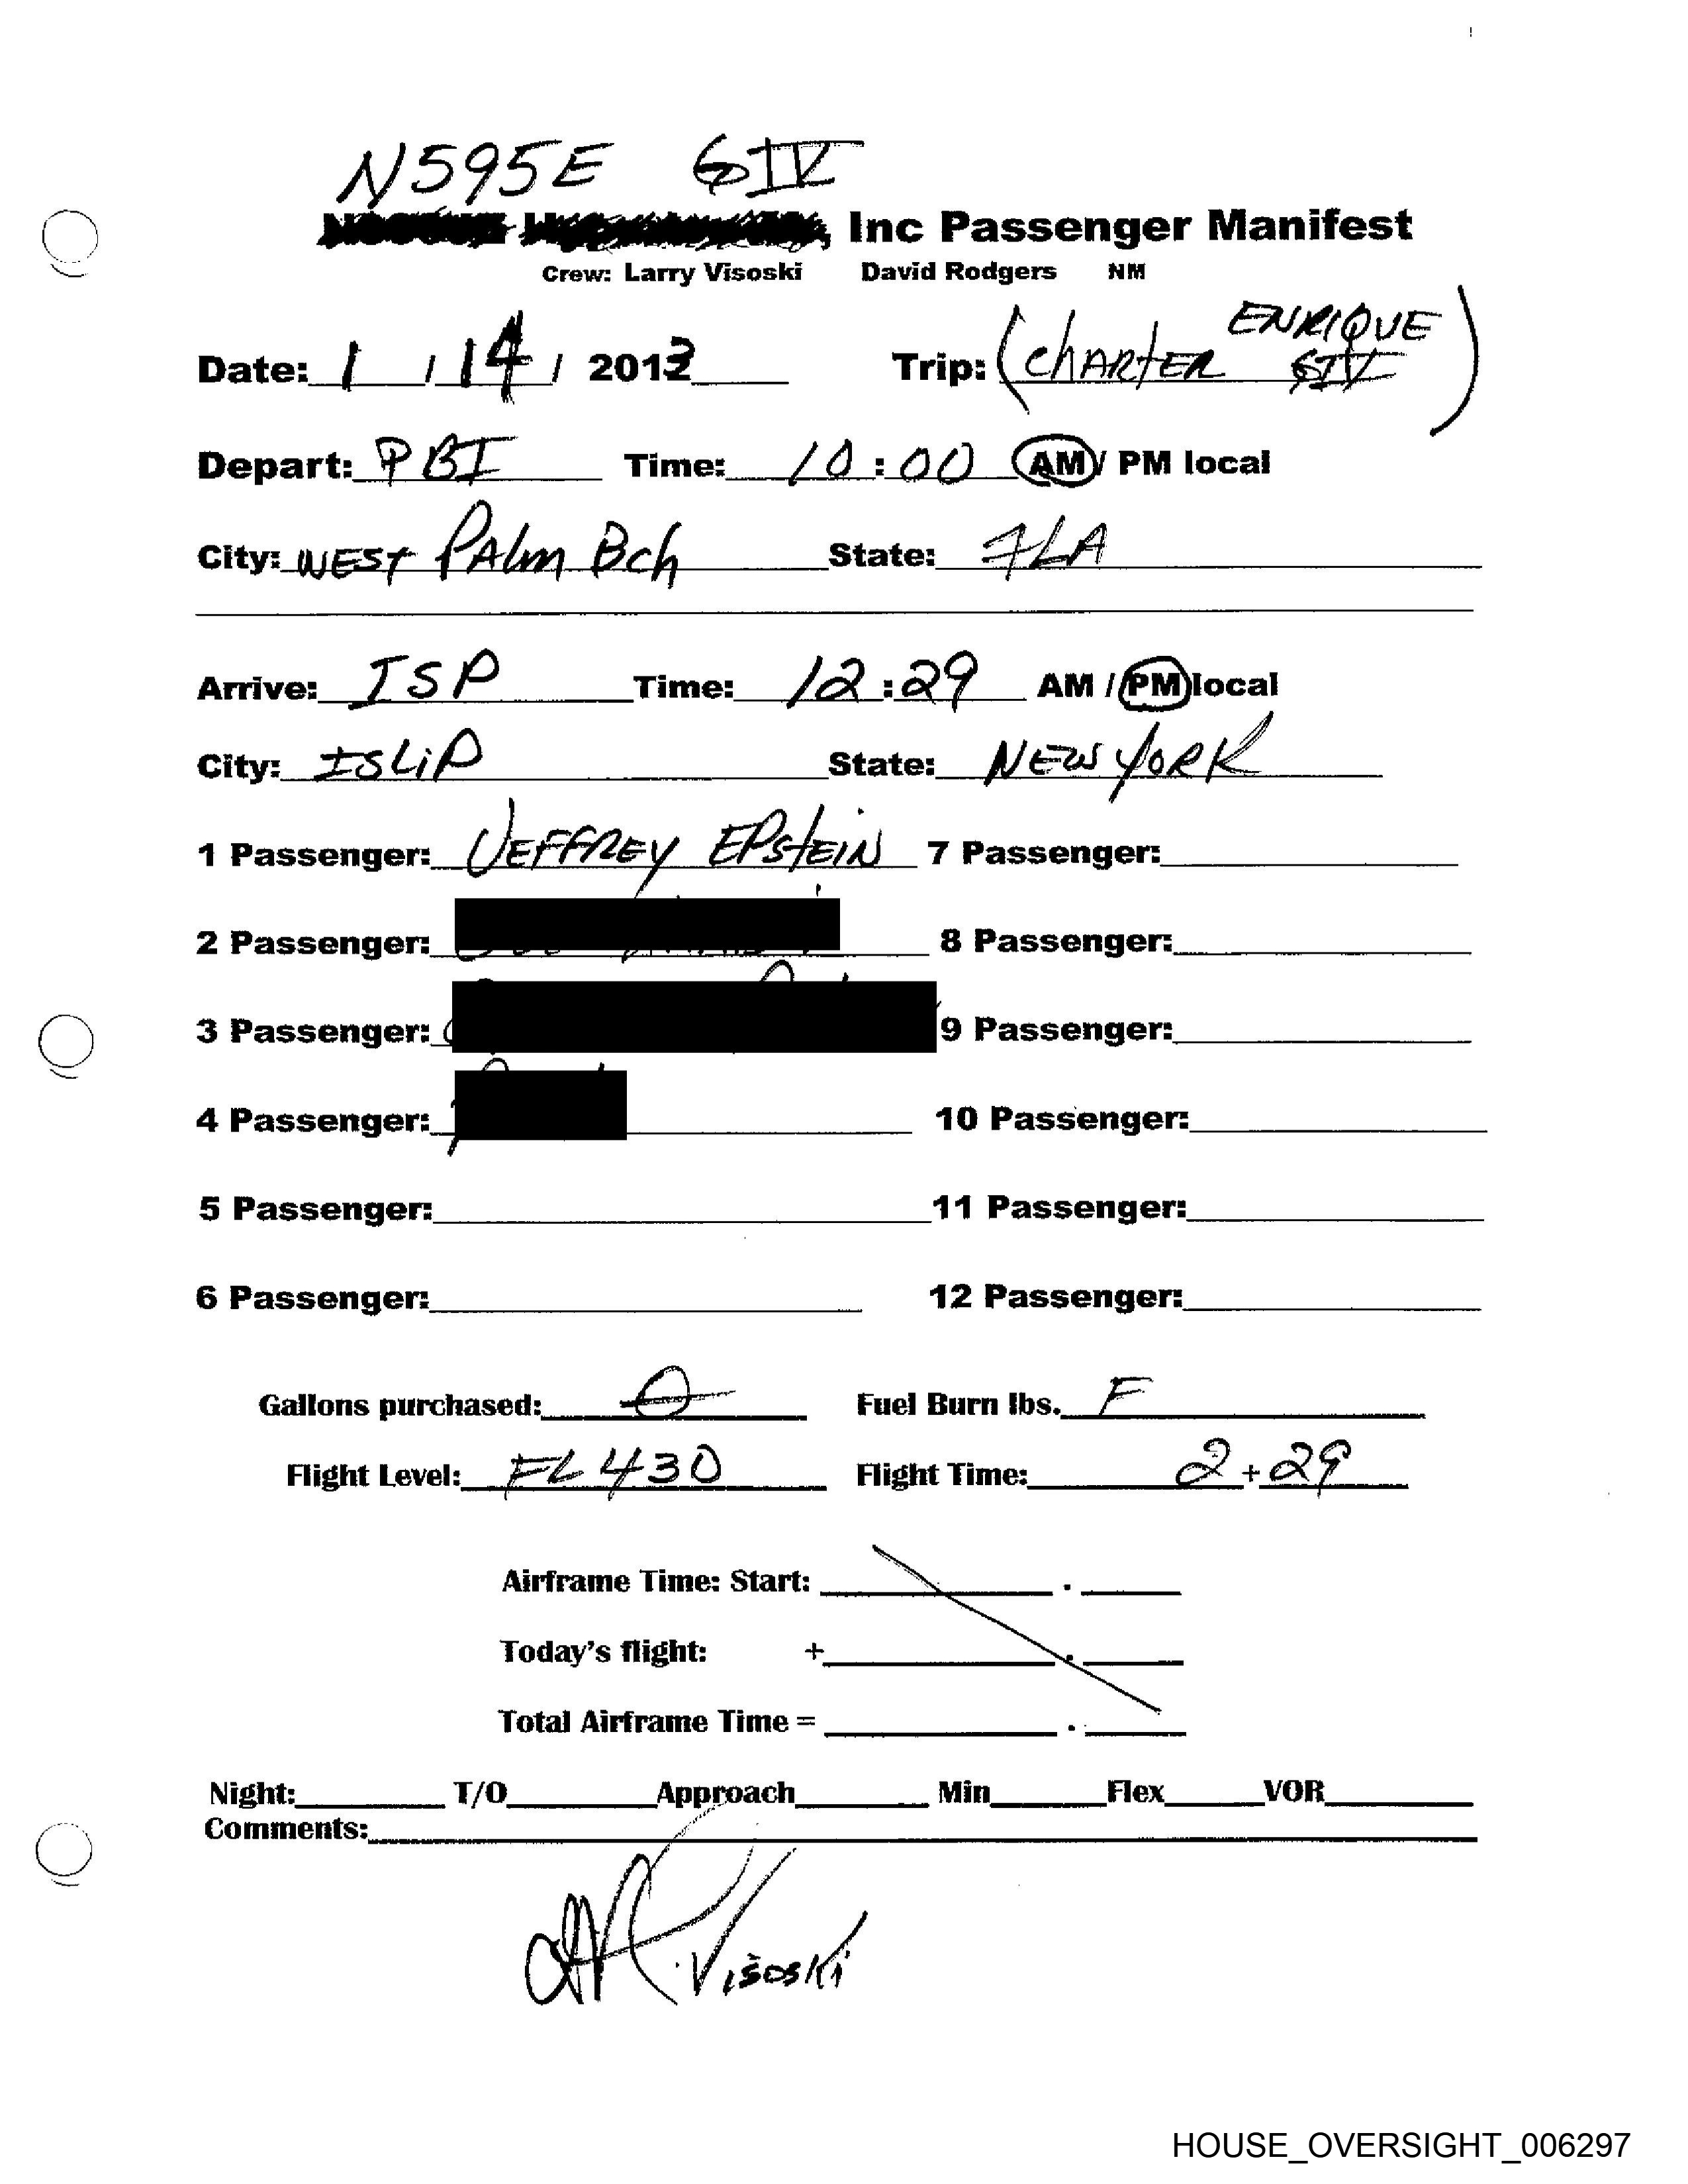 N595E GIV
Inc Passenger Manifest
Crew: Larry Visoski David Rodgers NM
Date: 1 / 14 / 2013 Trip: (CHARTER ENRIQUE GIV)
Depart: PBI Time: 10:00 AM/ PM local
City: WEST PALM Bch State: FLA
Arrive: ISP Time: 12:29 AM / PM local
City: ISLiP State: NEW YORK
1 Passenger: JEFFREY EPStEIN 7 Passenger:
2 Passenger: 8 Passenger:
3 Passenger: 9 Passenger:
4 Passenger: 10 Passenger:
5 Passenger: 11 Passenger:
6 Passenger: 12 Passenger:
Gallons purchased: 0 Fuel Burn lbs. F
Flight Level: FL 430 Flight Time: 2 + 29
Airframe Time: Start: .
Today's flight: + .
Total Airframe Time = .
Night: T/O Approach Min Flex VOR
Comments:
Visoski
HOUSE_OVERSIGHT_006297